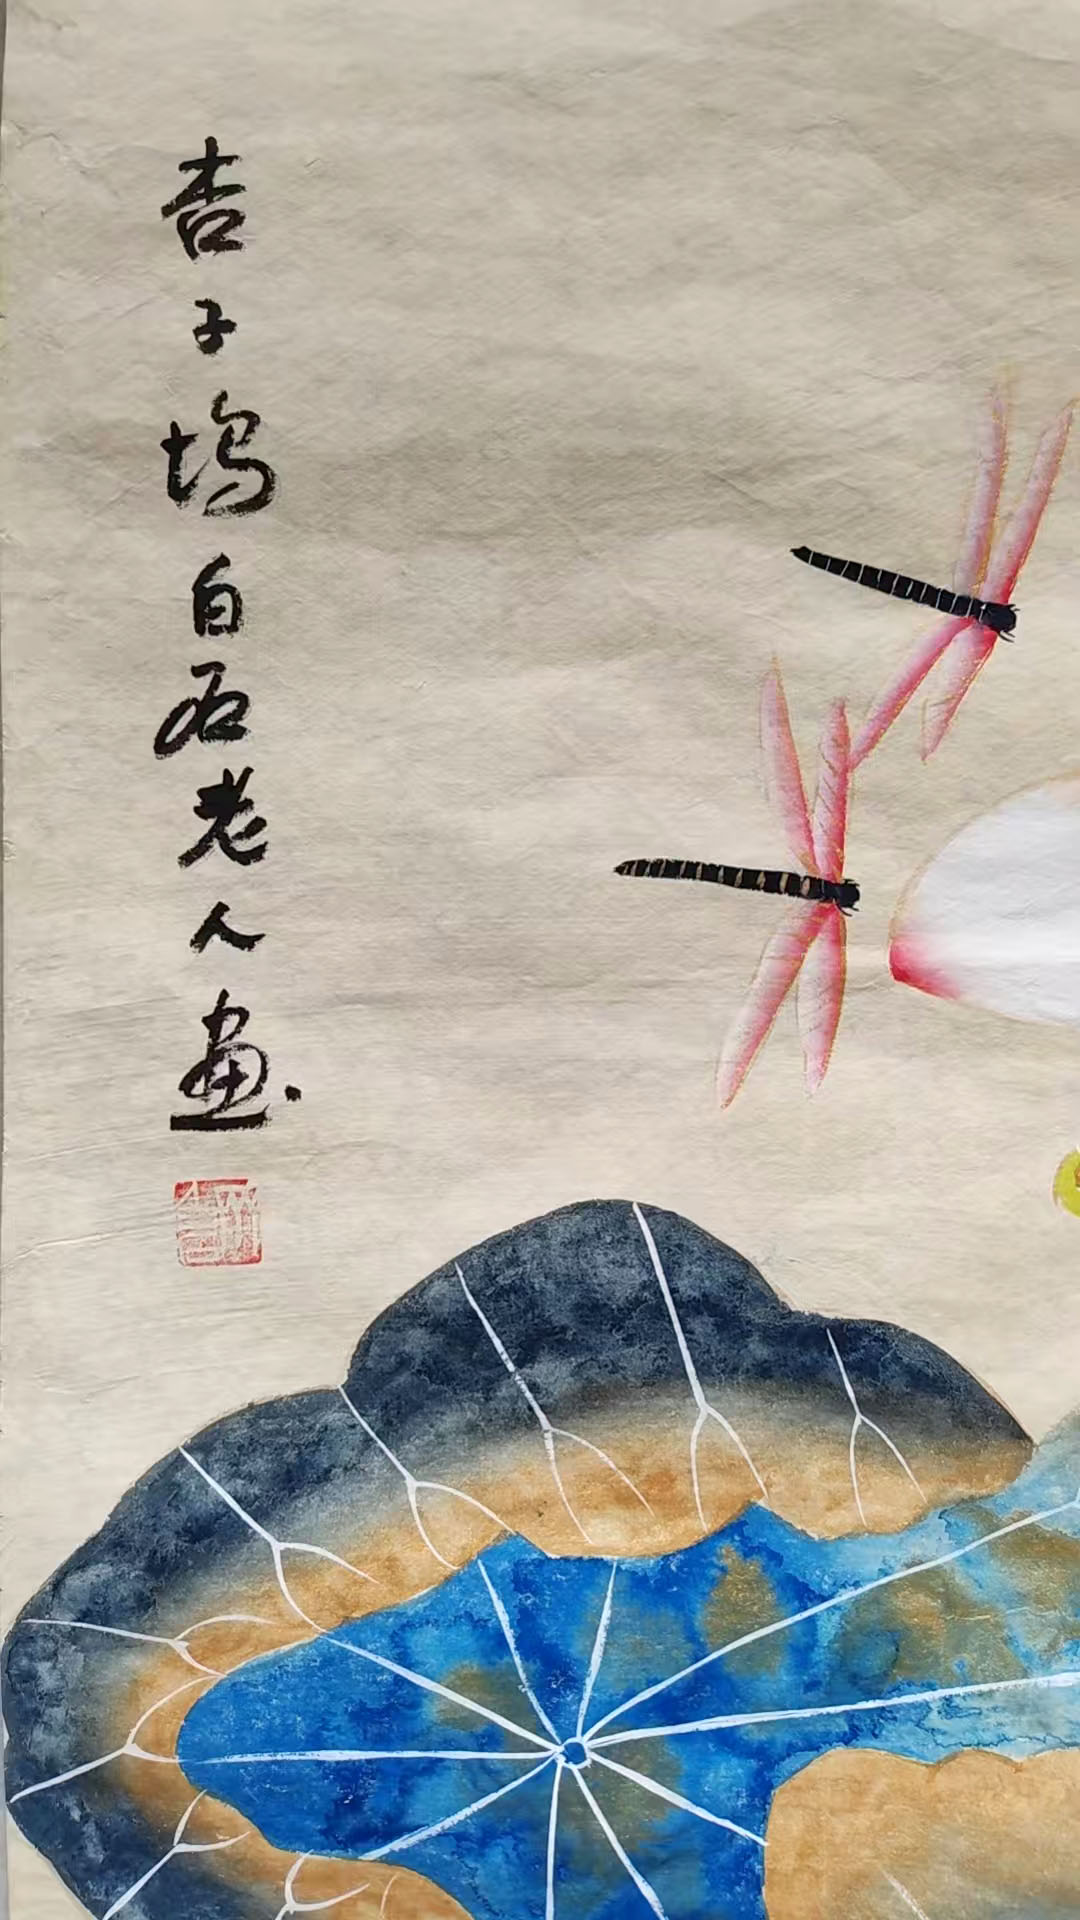 杏子坞白石老人画